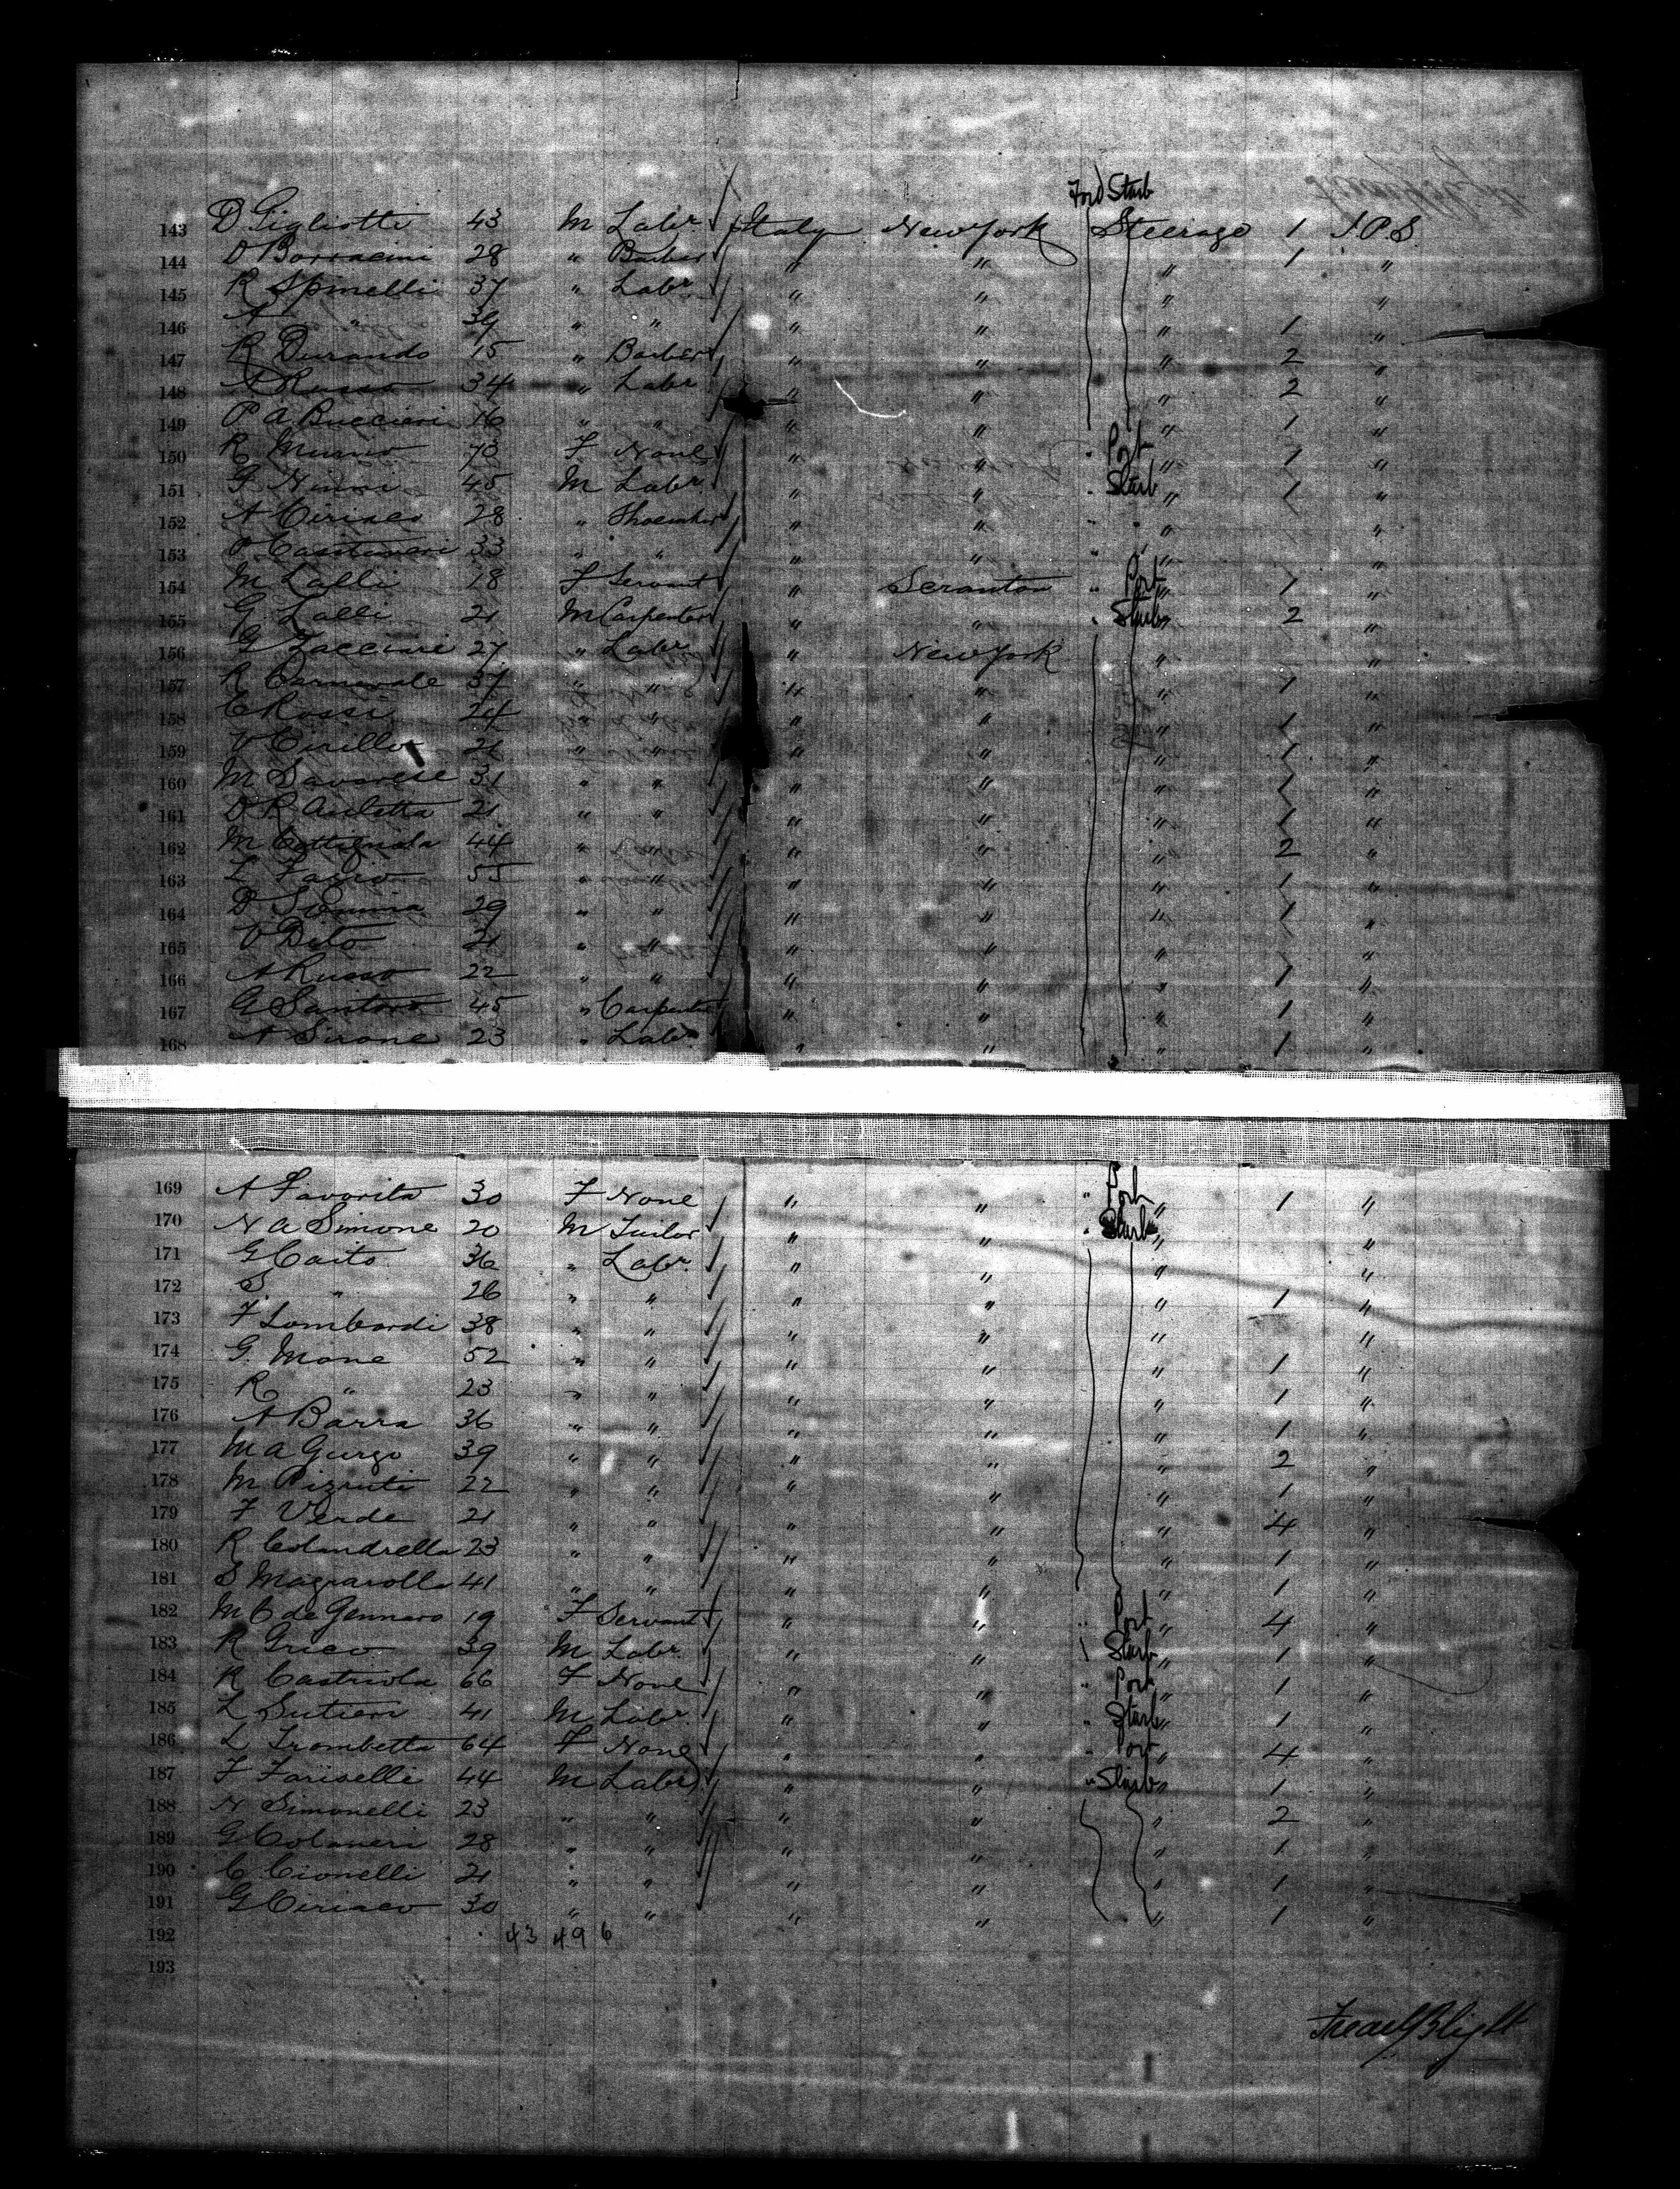 Ford Starb
143 D Gigliotti 43 M Labr Italy New York Steerage 1 J.P.S.
144 D Borracini 28 " Barber " " " 1 "
145 R Spinelli 37 " Labr " " " "
146 A " 39 " " " " " 1 "
147 R Durando 15 " Barber " " " 2 "
148 A Russo 34 " Labr " " " 2 "
149 P A Buccieri 16 " " " " " 1 "
150 R Murno 73 F None " " " Port " 1 "
151 G Ninni 45 M Labr " " " Starb " 1 "
152 A Ciriaco 28 " Shoemaker " " " " " "
153 33 " " " " " " "
154 M Lalli 18 F Servant " Scranton " Port " 1 "
155 G Lalli 21 M Carpenter " " " Starb " 2 "
156 G Zacciari 27 " Labr " New York " "
157 R Carnevale 37 " " " " " 1 "
158 C Rossi 24 " " " " " 1 "
159 V Cirillo 21 " " " " " 1 "
160 M Savarese 31 " " " " " 1 "
161 D R Auletta 21 " " " " " 1 "
162 M Cottignola 44 " " " " " 2 "
163 L Fazio 55 " " " " " 1 "
164 D 29 " " " " " 1 "
165 V Dito 21 " " " " " "
166 A Russo 22 " " " " " 1 "
167 G Santoro 45 " Carpenter " " " 1 "
168 A Sirone 23 " Labr " " " 1 "
169 A Favorita 30 F None " " " Port " 1 "
170 N A Simone 20 M Tailor " " " Starb " "
171 G Caito 36 " Labr " " " "
172 S " 26 " " " " " 1 "
173 F Lombardi 38 " " " " " "
174 G. Mone 52 " " " " " 1 "
175 R " 23 " " " " " 1 "
176 A Barra 36 " " " " " 1 "
177 M A Gurgo 39 " " " " " 2 "
178 M Pizruti 22 " " " " " 1 "
179 F Verde 21 " " " " " 4 "
180 R Colandrella 23 " " " " " 1 "
181 S Magrarolla 41 " " " " " 1 "
182 M C de Gennaro 19 F Servant " " " Port " 4 "
183 R Grieco 39 M Labr " " Starb " 1 "
184 R Castriola 66 F None " " " Port " 1 "
185 L Sutieri 41 M Labr " " " Starb " 1 "
186 L Trombetta 64 F None " " " Port " 4 "
187 F Fariselli 44 M Labr " " " Starb " 1 "
188 N Simonelli 23 " " " " " 2 "
189 G Colaneri 28 " " " " 1 "
190 C Cionelli 21 " " " " " 1 "
191 G Ciriaco 30 " " " " " 1 "
192 43 49 6
193